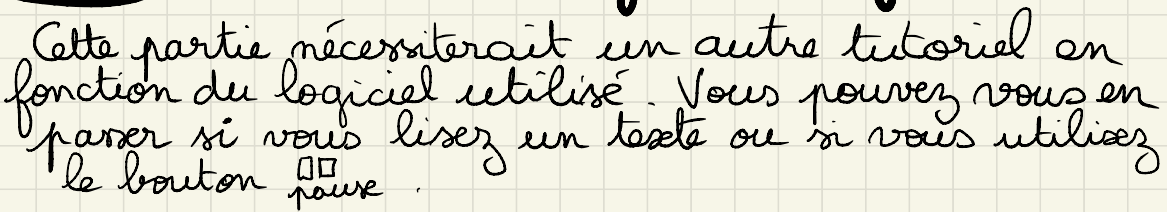 Cette partie nécessiterait un autre tutoriel en
fonction du logiciel utilisé. Vous pouvez vous en
passer si vous lisez un texte ou si vous utilisez
le bouton pause.